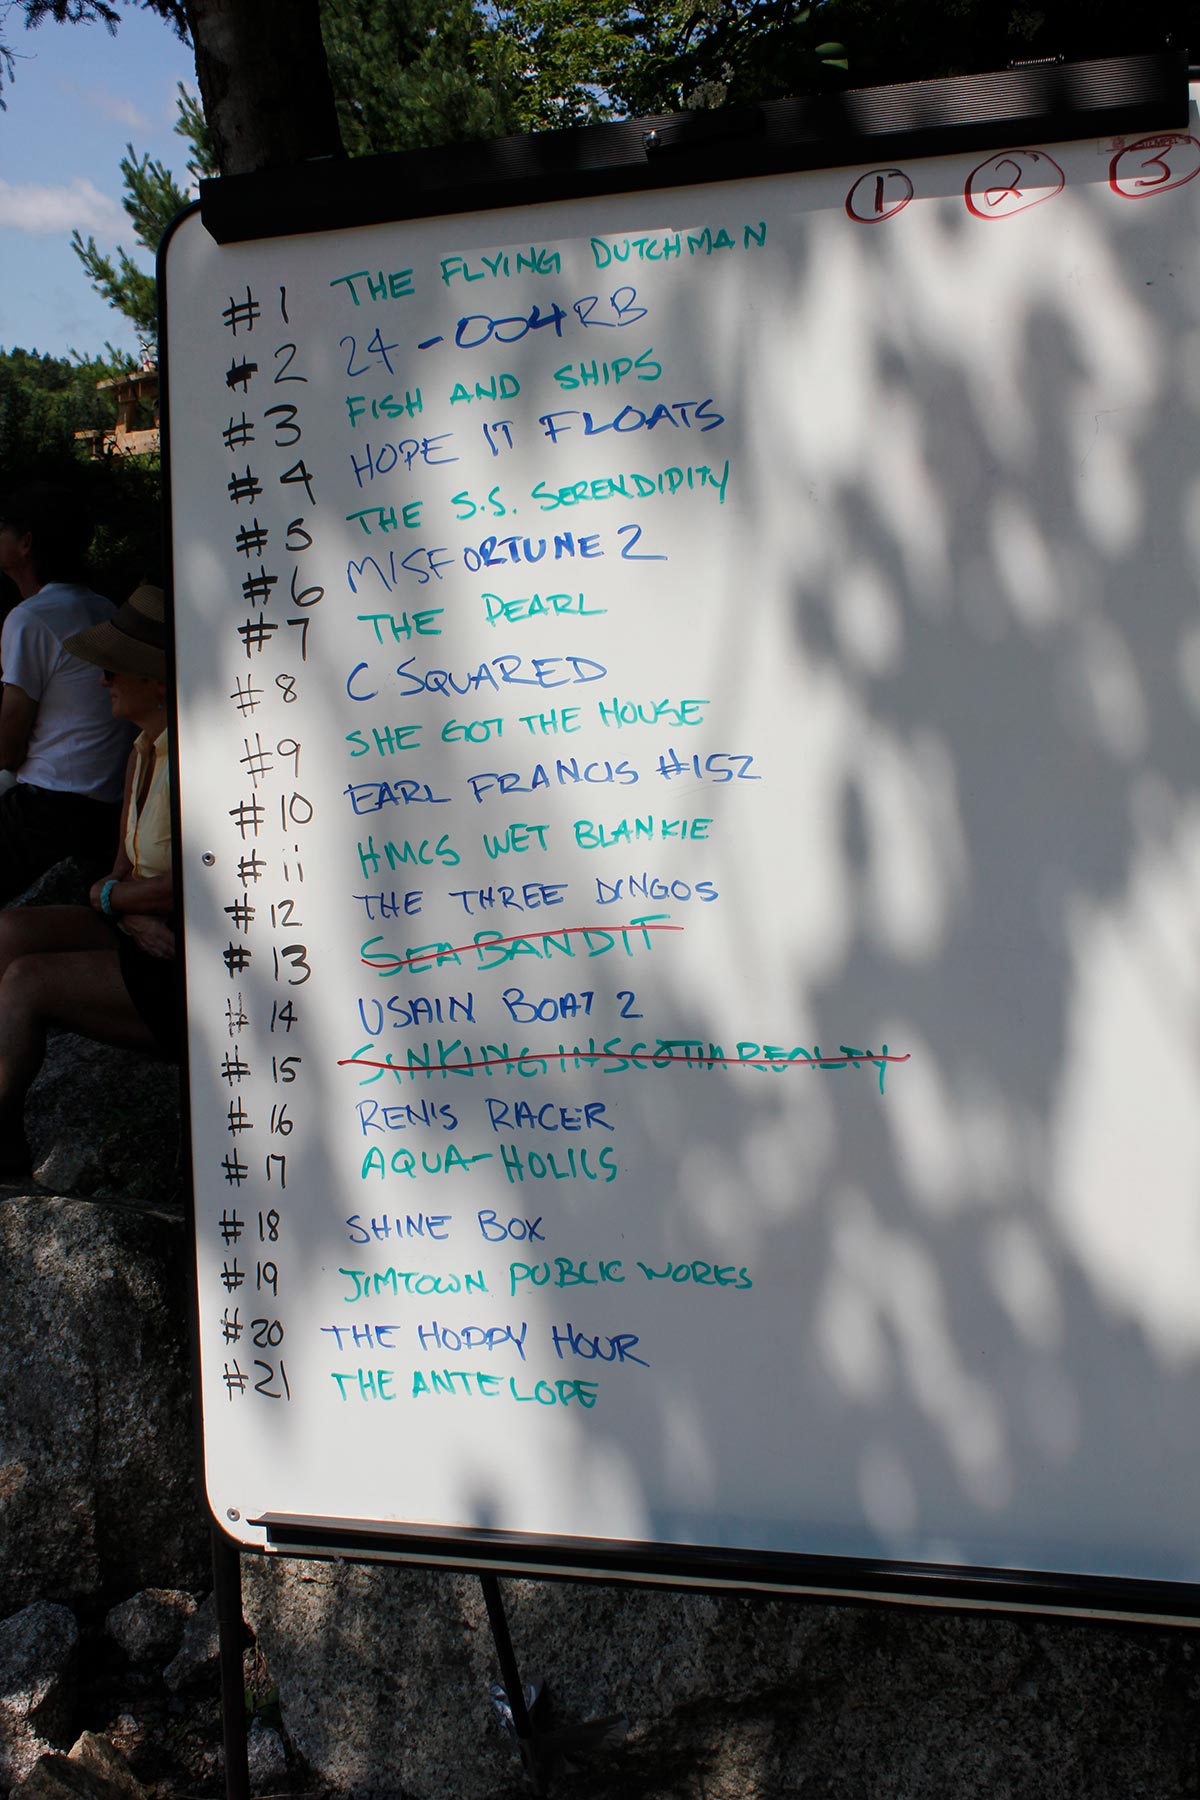 1 2 3
#1 THE FLYING DUTCHMAN
#2 24-004RB
#3 FISH AND SHIPS
#4 HOPE IT FLOATS
#5 THE S.S. SERENDIPITY
#6 MISFORTUNE 2
#7 THE PEARL
#8 C SQUARED
#9 SHE GOT THE HOUSE
#10 EARL FRANCIS #152
#11 HMCS WET BLANKIE
#12 THE THREE DINGOS
#13 SEA BANDIT
#14 USAIN BOAT 2
#15 SINKING IN SCOTIA REALTY
#16 REN'S RACER
#17 AQUA-HOLICS
#18 SHINE BOX
#19 JIMTOWN PUBLIC WORKS
#20 THE HOPPY HOUR
#21 THE ANTELOPE